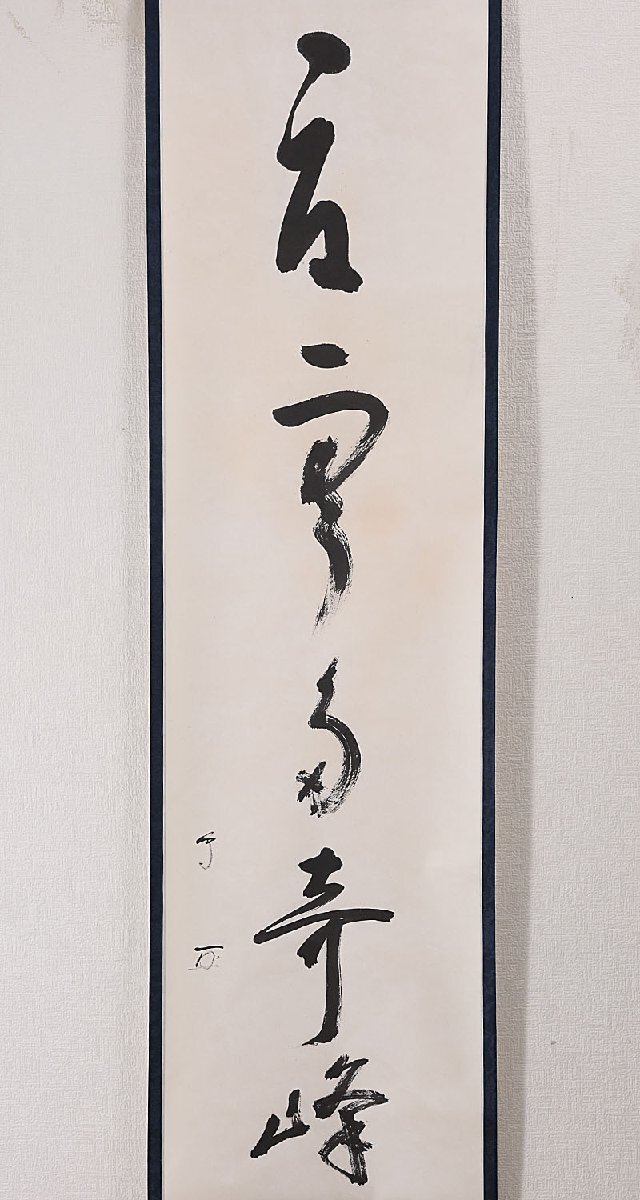 夏雲多奇峰